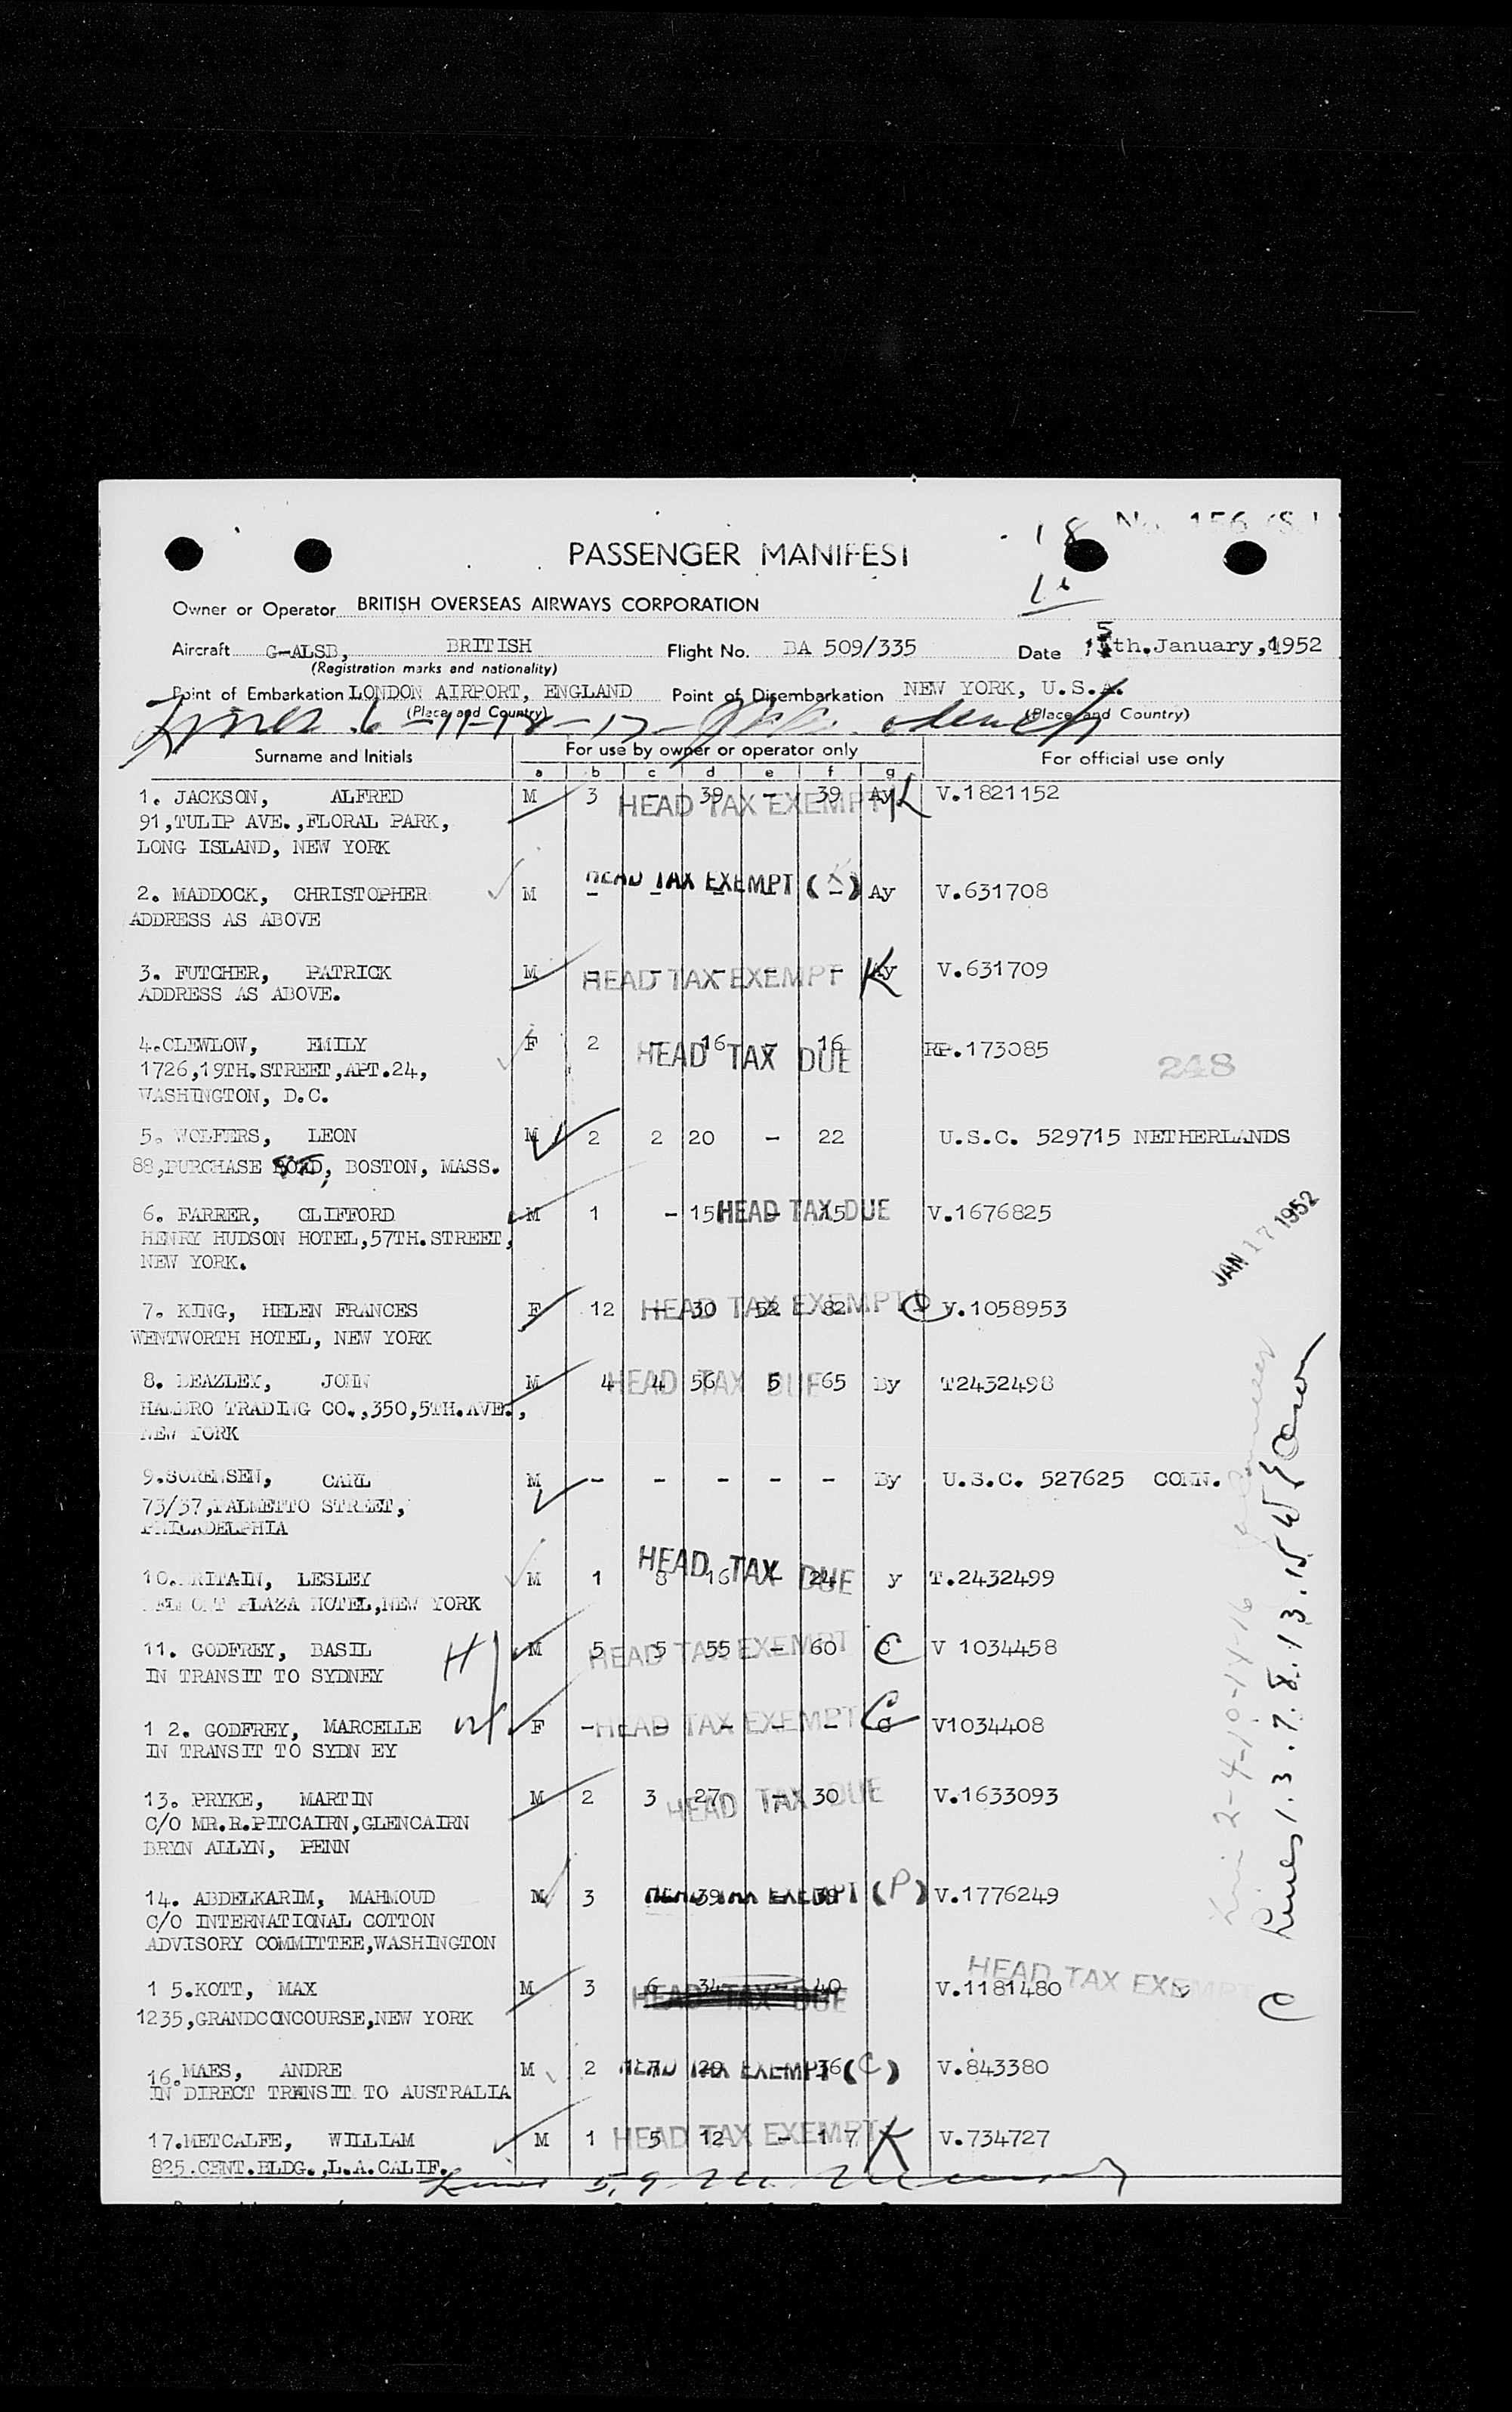 18 No. 156
PASSENGER MANIFEST
Owner or Operator BRITISH OVERSEAS AIRWAYS CORPORATION
Aircraft G-ALSB, BRITISH Flight No. BA 509/335 Date 15th.January,1952
(Registration marks and nationality)
Point of Embarkation LONDON AIRPORT, ENGLAND Point of Disembarkation NEW YORK, U.S.A.
(Place and Country) (Place and Country)
Surname and Initials For use by owner or operator only For official use only
a b c d e f g
1. JACKSON, ALFRED M 3 - 39 - 39 Ay V.1821152
HEAD TAX EXEMPT
91,TULIP AVE.,FLORAL PARK,
LONG ISLAND, NEW YORK
HEAD TAX EXEMPT
2. MADDOCK, CHRISTOPHER M - - - - - Ay V.631708
ADDRESS AS ABOVE
3. FUTCHER, PATRICK M - - - - - Ay K V.631709
HEAD TAX EXEMPT
ADDRESS AS ABOVE.
4.CLEWLOW, EMILY F 2 - 16 - 16 RP.173085
HEAD TAX DUE
1726,19TH.STREET,APT.24, 248
WASHINGTON, D.C.
5. WOLFERS, LEON M 2 2 20 - 22 U.S.C. 529715 NETHERLANDS
88,PURCHASE ST, BOSTON, MASS.
6. FARRER, CLIFFORD M 1 - 15 - 15 V.1676825
HEAD TAX DUE
HENRY HUDSON HOTEL,57TH.STREET,
NEW YORK.
JAN 17 1952
7. KING, HELEN FRANCES F 12 - 30 52 82 V.1058953
HEAD TAX EXEMPT
WENTWORTH HOTEL, NEW YORK
8. BEAZLEY, JOHN M 4 4 56 5 65 By T2432498
HEAD TAX DUE
HAMBRO TRADING CO.,350,5TH.AVE.,
NEW YORK
9.SORENSEN, CARL M - - - - - By U.S.C. 527625 CONN.
73/37,PALMETTO STREET,
PHILADELPHIA
HEAD TAX DUE
10. BRITAIN, LESLEY M 1 8 16 - 24 y T.2432499
BELMONT PLAZA HOTEL,NEW YORK
11. GODFREY, BASIL M 5 5 55 - 60 C V 1034458
HEAD TAX EXEMPT
IN TRANSIT TO SYDNEY H
1 2. GODFREY, MARCELLE W F - - - - - C V1034408
HEAD TAX EXEMPT
IN TRANSIT TO SYDN EY
13. PRYKE, MARTIN M 2 3 27 - 30 V.1633093
HEAD TAX DUE
C/O MR.R.PITCAIRN,GLENCAIRN
BRYN ALLYN, PENN
14. ABDELKARIM, MAHMOUD M 3 39 39 (P) V.1776249
HEAD TAX EXEMPT
C/O INTERNATIONAL COTTON
ADVISORY COMMITTEE,WASHINGTON
1 5.KOTT, MAX M 3 6 34 - 40 V.1181480
HEAD TAX DUE HEAD TAX EXEMPT C
1235,GRANDCONCOURSE,NEW YORK
16. MAES, ANDRE M 2 7 29 - 36 (C) V.843380
HEAD TAX EXEMPT
IN DIRECT TRANSIT TO AUSTRALIA
17.METCALFE, WILLIAM M 1 5 12 - 1 7 K V.734727
HEAD TAX EXEMPT
825.CENT.BLDG.,L.A.CALIF.
Lines 5, 9
Lines 2-4-10-14-16
Lines 1.3.7.8.13.15